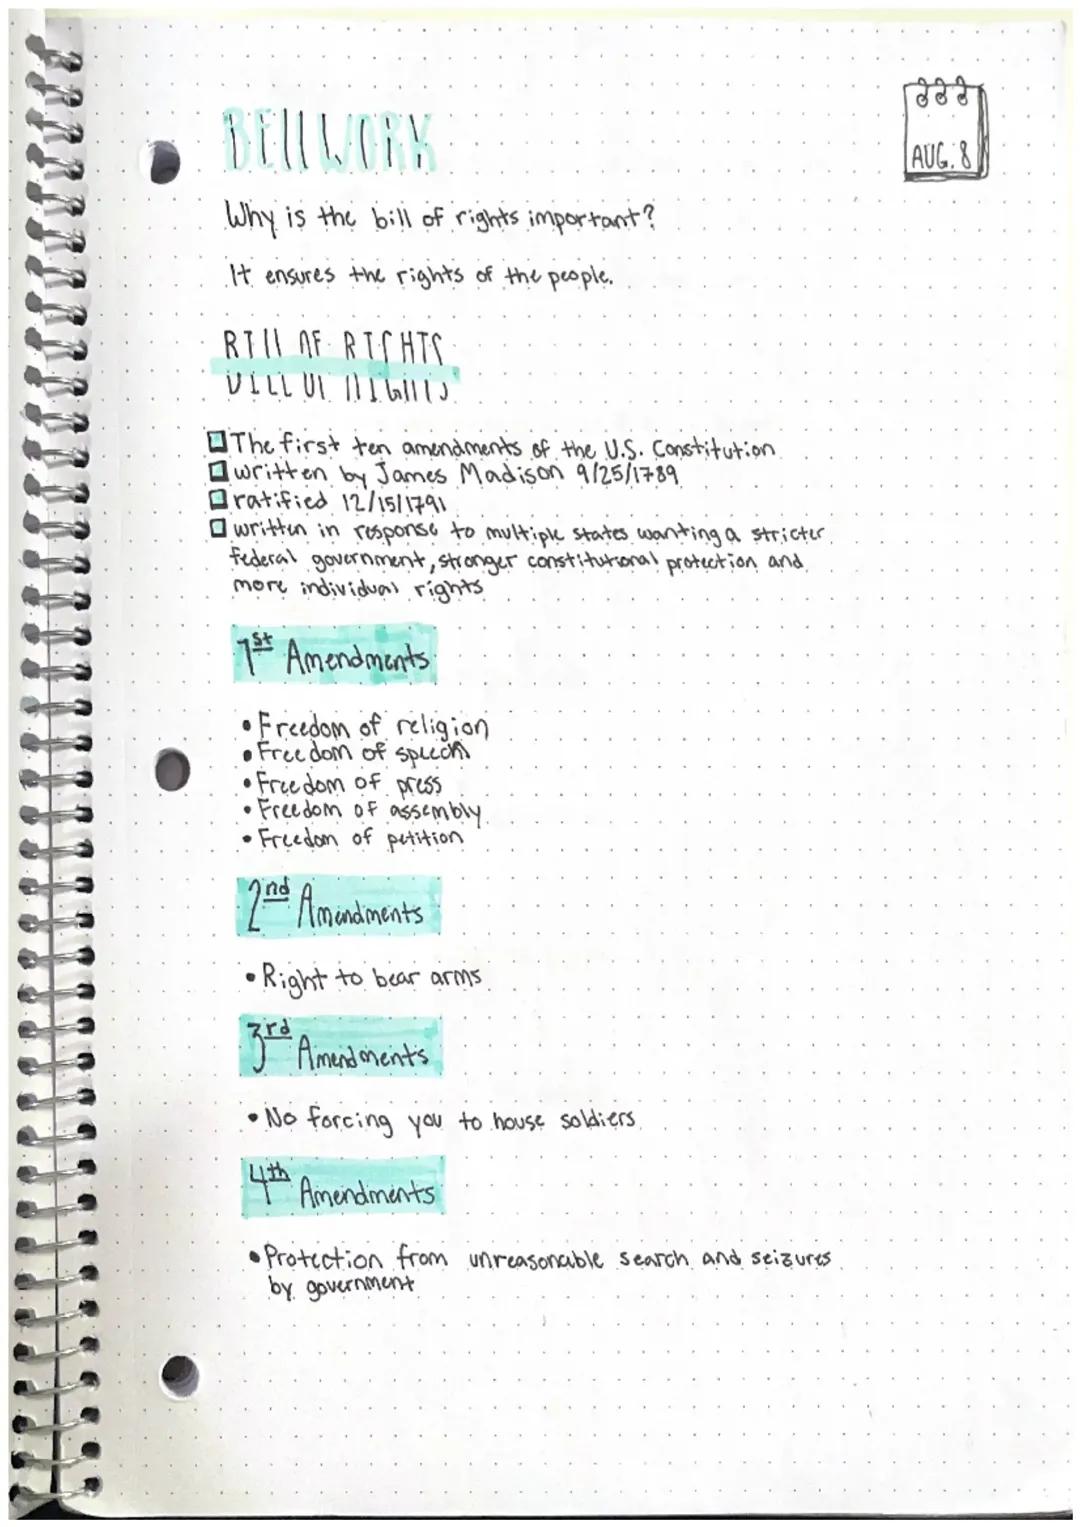 BELLWORK
AUG. 8
Why is the bill of rights important?
It ensures the rights of the people.
BILL OF RIGHTS
The first ten amendments of the U.S. Constitution
written by James Madison 9/25/1789
ratified 12/15/1791
written in response to multiple states wanting a stricter
federal government, stronger constitutional protection and
more individual rights
1st Amendments
• Freedom of religion
• Freedom of speech
• Freedom of press
• Freedom of assembly
• Freedom of petition
2nd Amendments
• Right to bear arms
3rd Amendments
• No forcing you to house soldiers
4th Amendments
• Protection from unreasonable search and seizures
by government